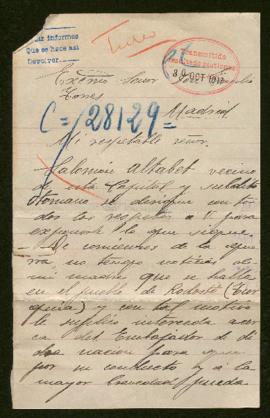 informes
Que se hace así
Devolver
Transmitido
30 OCT 1917
Excmo Señor
Torres
Madrid
C=/28129=
Mi respetable señor.
Salomon Altabet vecino
de esta Capital y subdito
Otomano se dirige con to
dos los respetos a V para
exponerle lo que sigue.
De comienzos de la guer
ra no tengo noticias de
mi madre que se halla
en el pueblo de Rodosto (Tur
quia) y con tal motivo
le suplico interceda acer
ca del Embajador de di
cha nacion para que
por su conducto y a la
mayor brevedad pueda